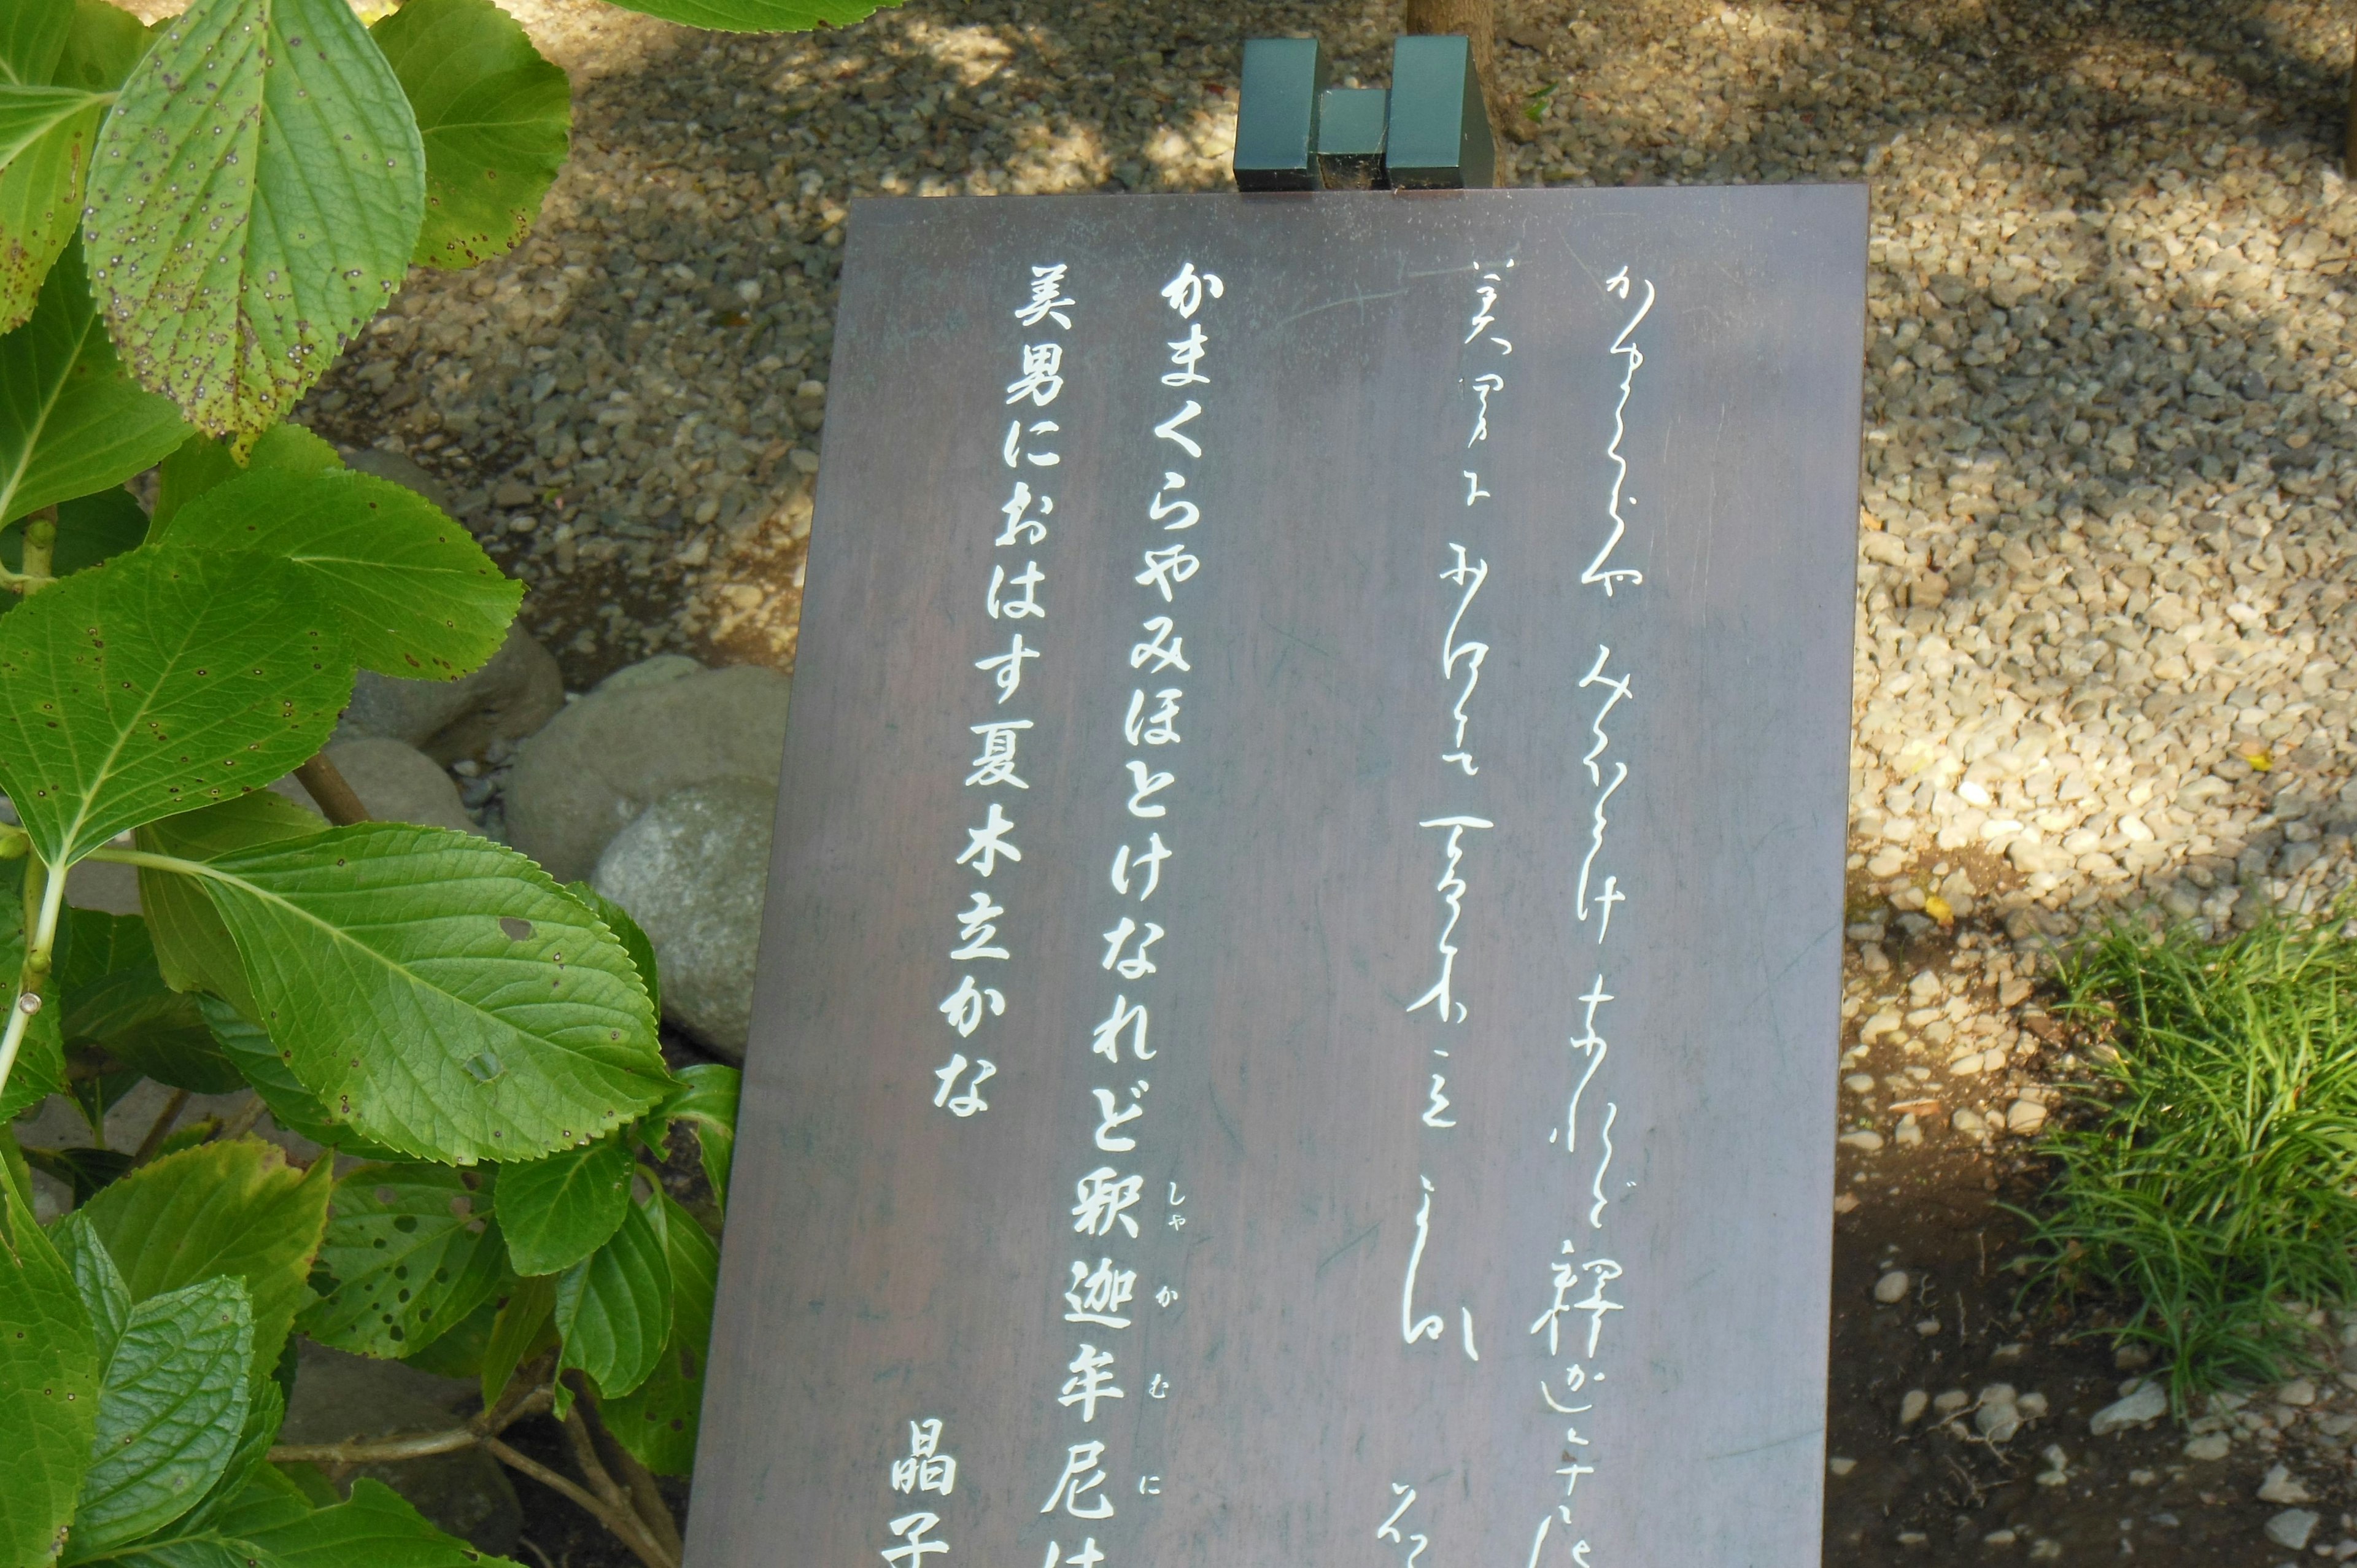 かまくらやみほとけなれど釋迦牟尼は
美男におはす夏木立かな
かまくらやみほとけなれど釈迦牟尼は
しゃかむに
美男におはす夏木立かな
晶子